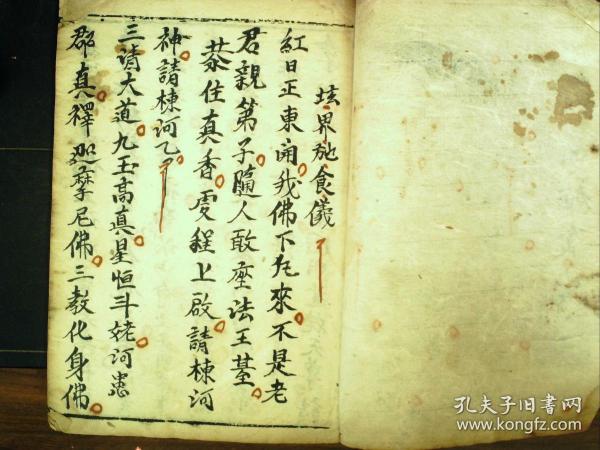 坛界施食儀
紅日正東南我佛下九來不是老
君親第子隨人敢座法王基
恭住真香虔程上啟請棟河
神請棟河乙
三清大道九玉高真星恒斗姥河患
郡真釋迦摩尼佛三教化身佛
孔夫子旧书网
www.kongfz.com